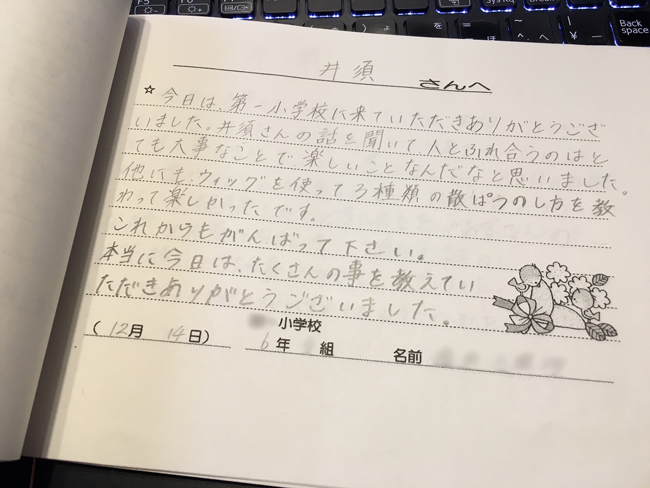 F5
Back
space
井須 さんへ
☆今日は、第一小学校に来ていただきありがとうござ
いました。井須さんの話を聞いて人とふれ合うのはと
ても大事なことで楽しいことなんだなと思いました。
他にも、ウィッグを使って3種類の散ぱつのし方を教
わって楽しかったです。
これからもがんばって下さい。
本当に今日は、たくさんの事を教えてい
ただきありがとうございました。
(12月 14日) 小学校
6年 組 名前